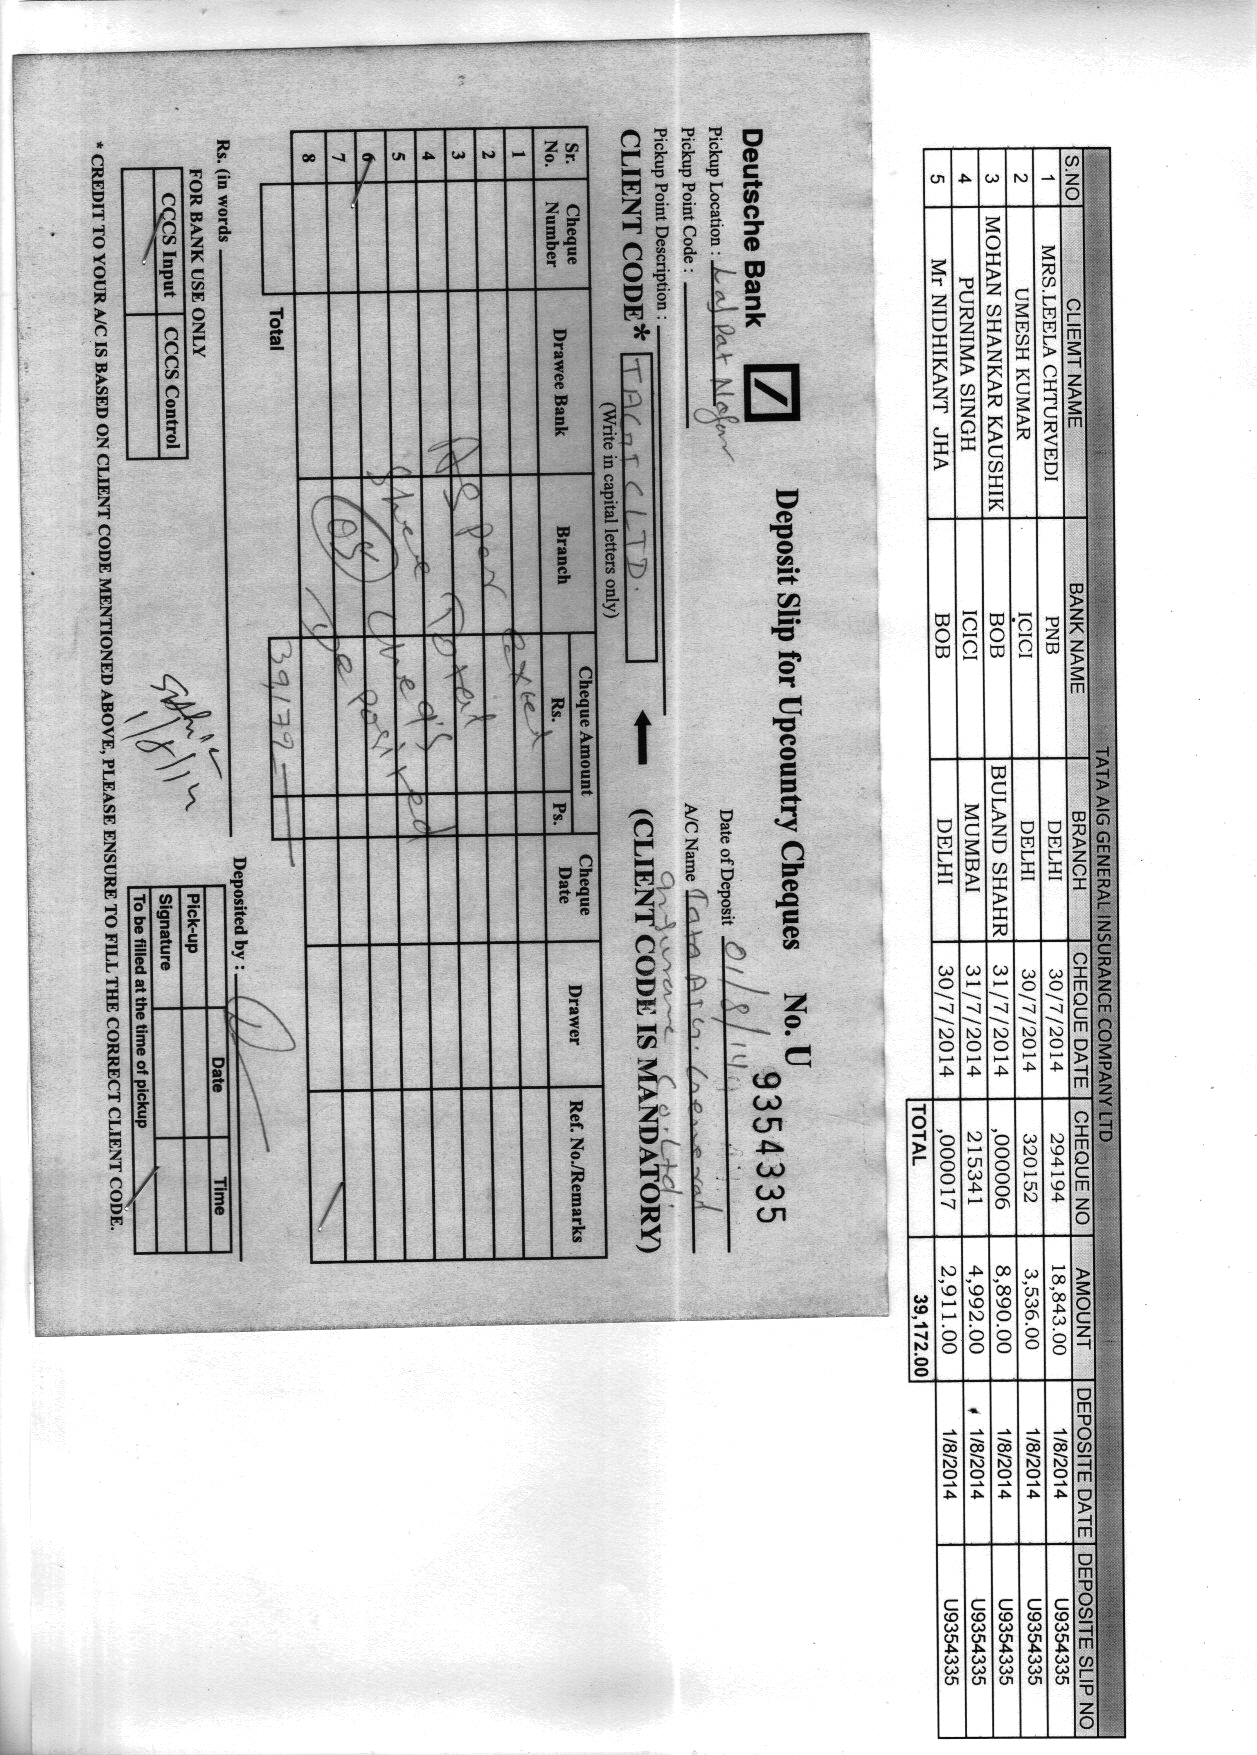 TATA AIG GENERAL INSURANCE COMPANY LTD
S.NO CLIEMT NAME BANK NAME BRANCH CHEQUE DATE CHEQUE NO AMOUNT DEPOSITE DATE DEPOSITE SLIP NO
1 MRS.LEELA CHTURVEDI PNB DELHI 30/7/2014 294194 18,843.00 1/8/2014 U9354335
2 UMESH KUMAR ICICI DELHI 30/7/2014 320152 3,536.00 1/8/2014 U9354335
3 MOHAN SHANKAR KAUSHIK BOB BULAND SHAHR 31/7/2014 ,000006 8,890.00 1/8/2014 U9354335
4 PURNIMA SINGH ICICI MUMBAI 31/7/2014 215341 4,992.00 1/8/2014 U9354335
5 Mr NIDHIKANT JHA BOB DELHI 30/7/2014 ,000017 2,911.00 1/8/2014 U9354335
TOTAL 39,172.00
Deutsche Bank Deposit Slip for Upcountry Cheques No. U 9354335
Pickup Location : Lajpat Nagar Date of Deposit 01/8/14
Pickup Point Code : A/C Name Tata AIG. General
Pickup Point Description : Insurance Co. Ltd.
CLIENT CODE* TAGICLTD. (CLIENT CODE IS MANDATORY)
(Write in capital letters only)
Sr. No. Cheque Number Drawee Bank Branch Cheque Amount Rs. Ps. Cheque Date Drawer Ref. No./Remarks
1
2
3
4
5
6
7
8
As per
sheet Total
05
Total 39,172
Rs. (in words Deposited by :
FOR BANK USE ONLY
CCCS Input CCCS Control
1/8/14
Date Time
Pick-up
Signature
To be filled at the time of pickup
* CREDIT TO YOUR A/C IS BASED ON CLIENT CODE MENTIONED ABOVE, PLEASE ENSURE TO FILL THE CORRECT CLIENT CODE.